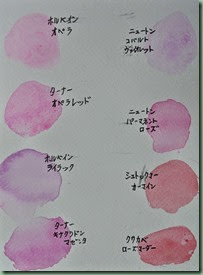 ホルベイン
オペラ
ニュートン
コバルト
ヴァイオレット
ターナー
オペラレッド
ニュートン
パーマネント
ローズ
ホルベイン
ライラック
シュトックマー
オーマイン
ターナー
キナクリドン
マゼンタ
クサカベ
ローズマダー